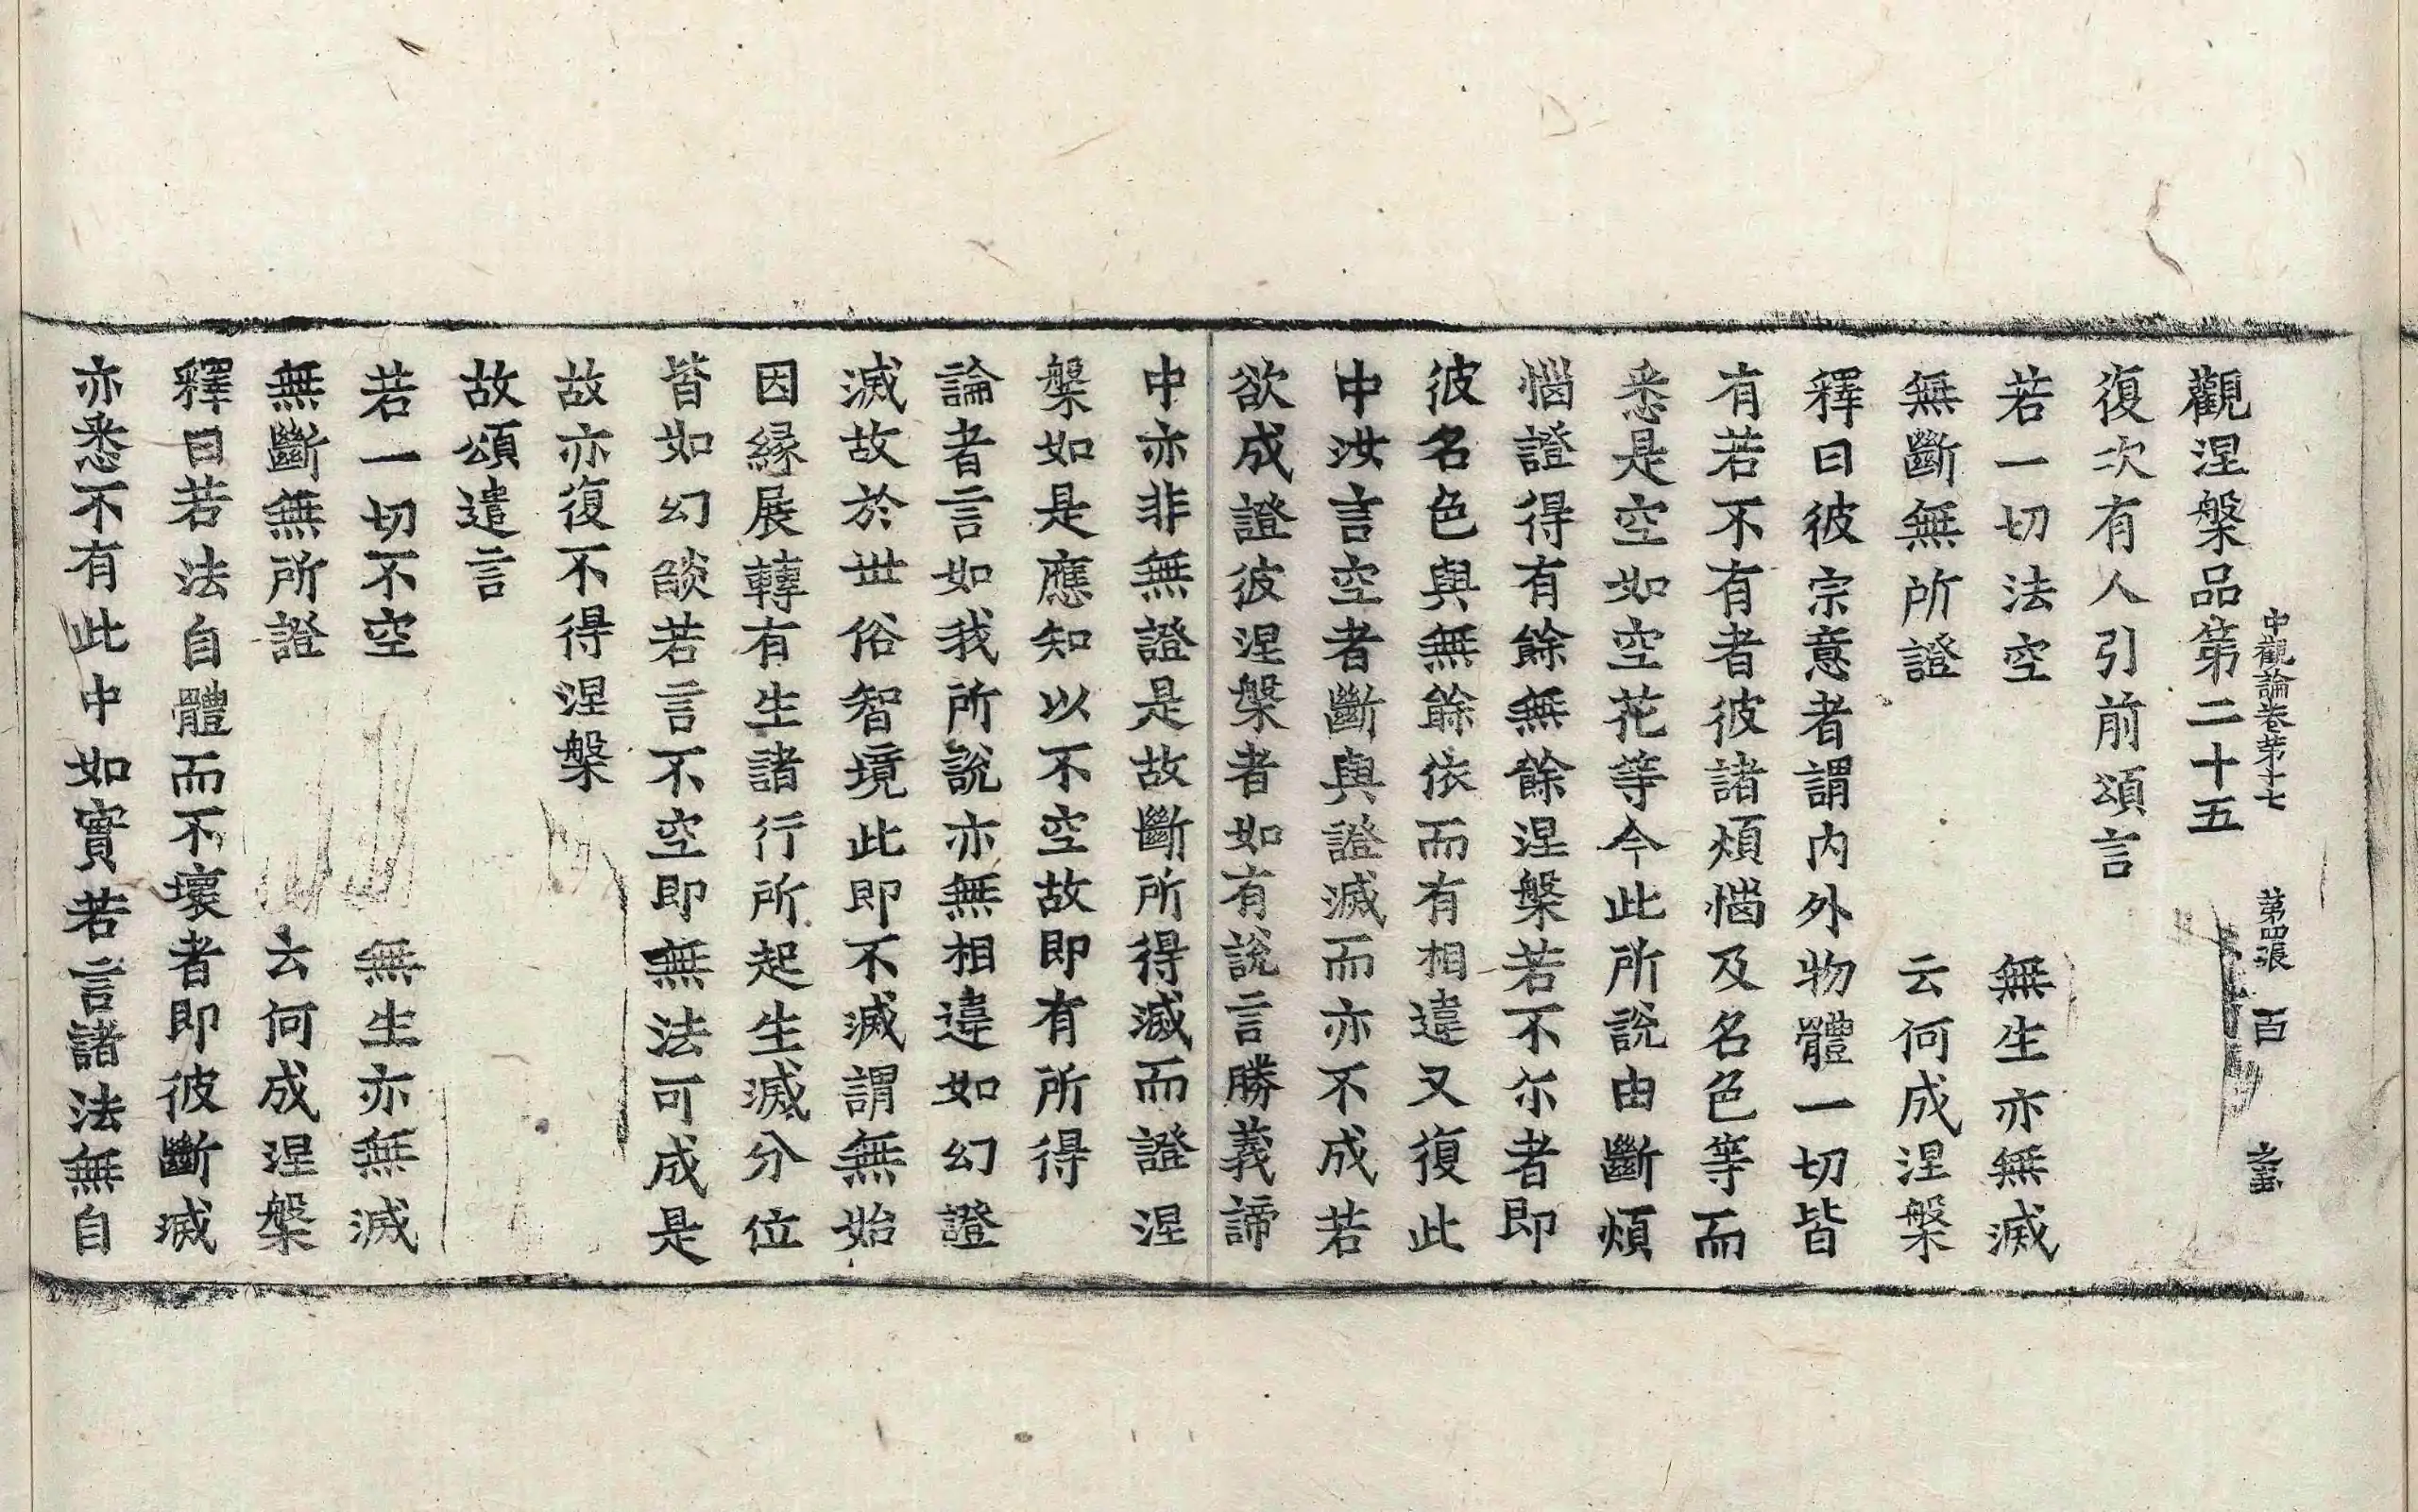 中觀論卷第十七　第四張　百
觀涅槃品第二十五
復次有人引前頌言
若一切法空　無生亦無滅
無斷無所證　云何成涅槃
釋曰彼宗意者謂内外物體一切皆
有若不有者彼諸煩惱及名色等而
悉是空如空花等今此所說由斷煩
惱證得有餘無餘涅槃若不尔者即
彼名色與無餘依而有相違又復此
中汝言空者斷與證滅而亦不成若
欲成證彼涅槃者如有說言勝義諦
中亦非無證是故斷所得滅而證涅
槃如是應知以不空故即有所得
論者言如我所說亦無相違如幻證
滅故於世俗智境此即不滅謂無始
因緣展轉有生諸行所起生滅分位
皆如幻燄若言不空即無法可成是
故亦復不得涅槃
故頌遣言
若一切不空　無生亦無滅
無斷無所證　云何成涅槃
釋曰若法自體而不壞者即彼斷滅
亦悉不有此中如實若言諸法無自